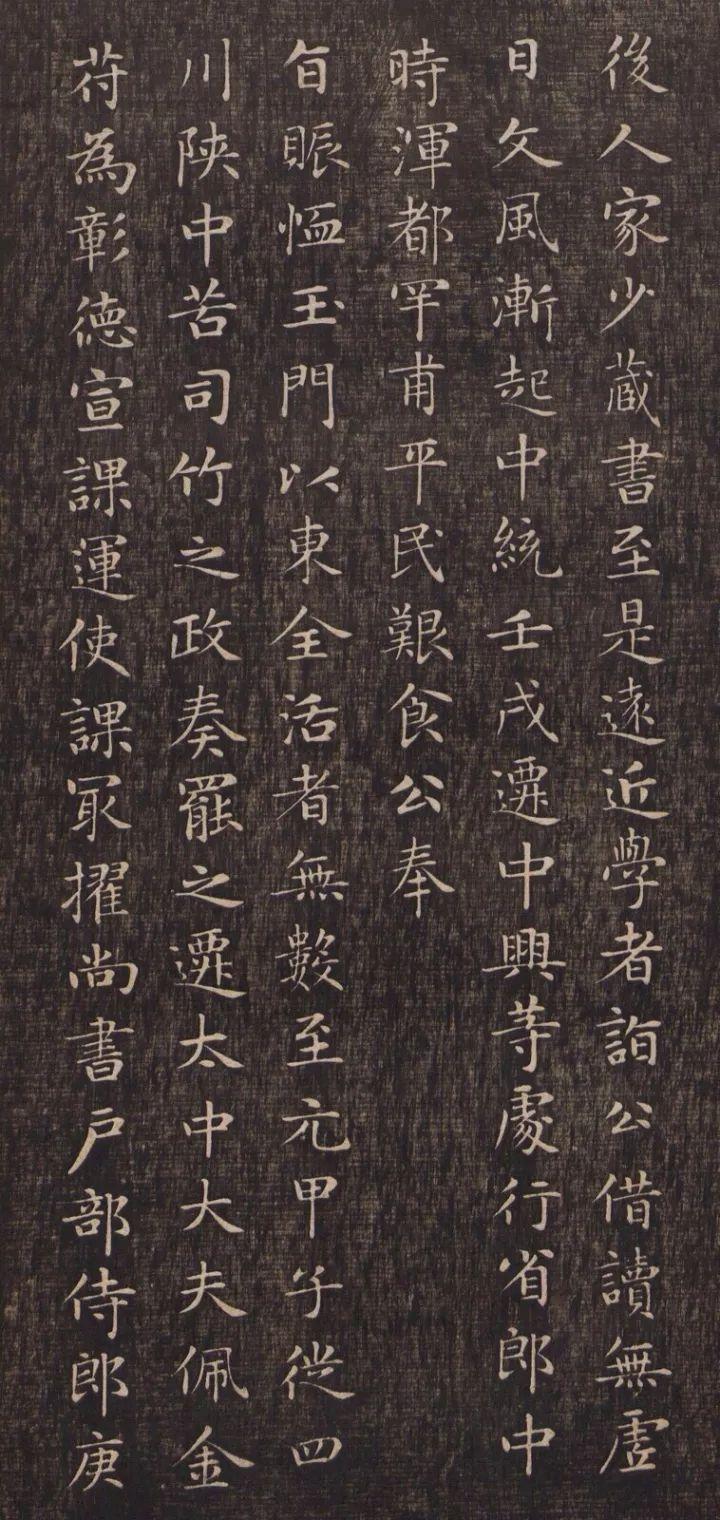 後人家少蔵書至是逺近學者詣公借讀無虗
日文風漸起中統壬戌遷中興等處行省郎中
時渾都罕甫平民艱食公奉
旨賑恤玉門以東全活者無數至元甲子從四
川陝中苦司竹之政奏罷之遷太中大夫佩金
苻為彰徳宣課運使課冣擢尚書戸部侍郎庚